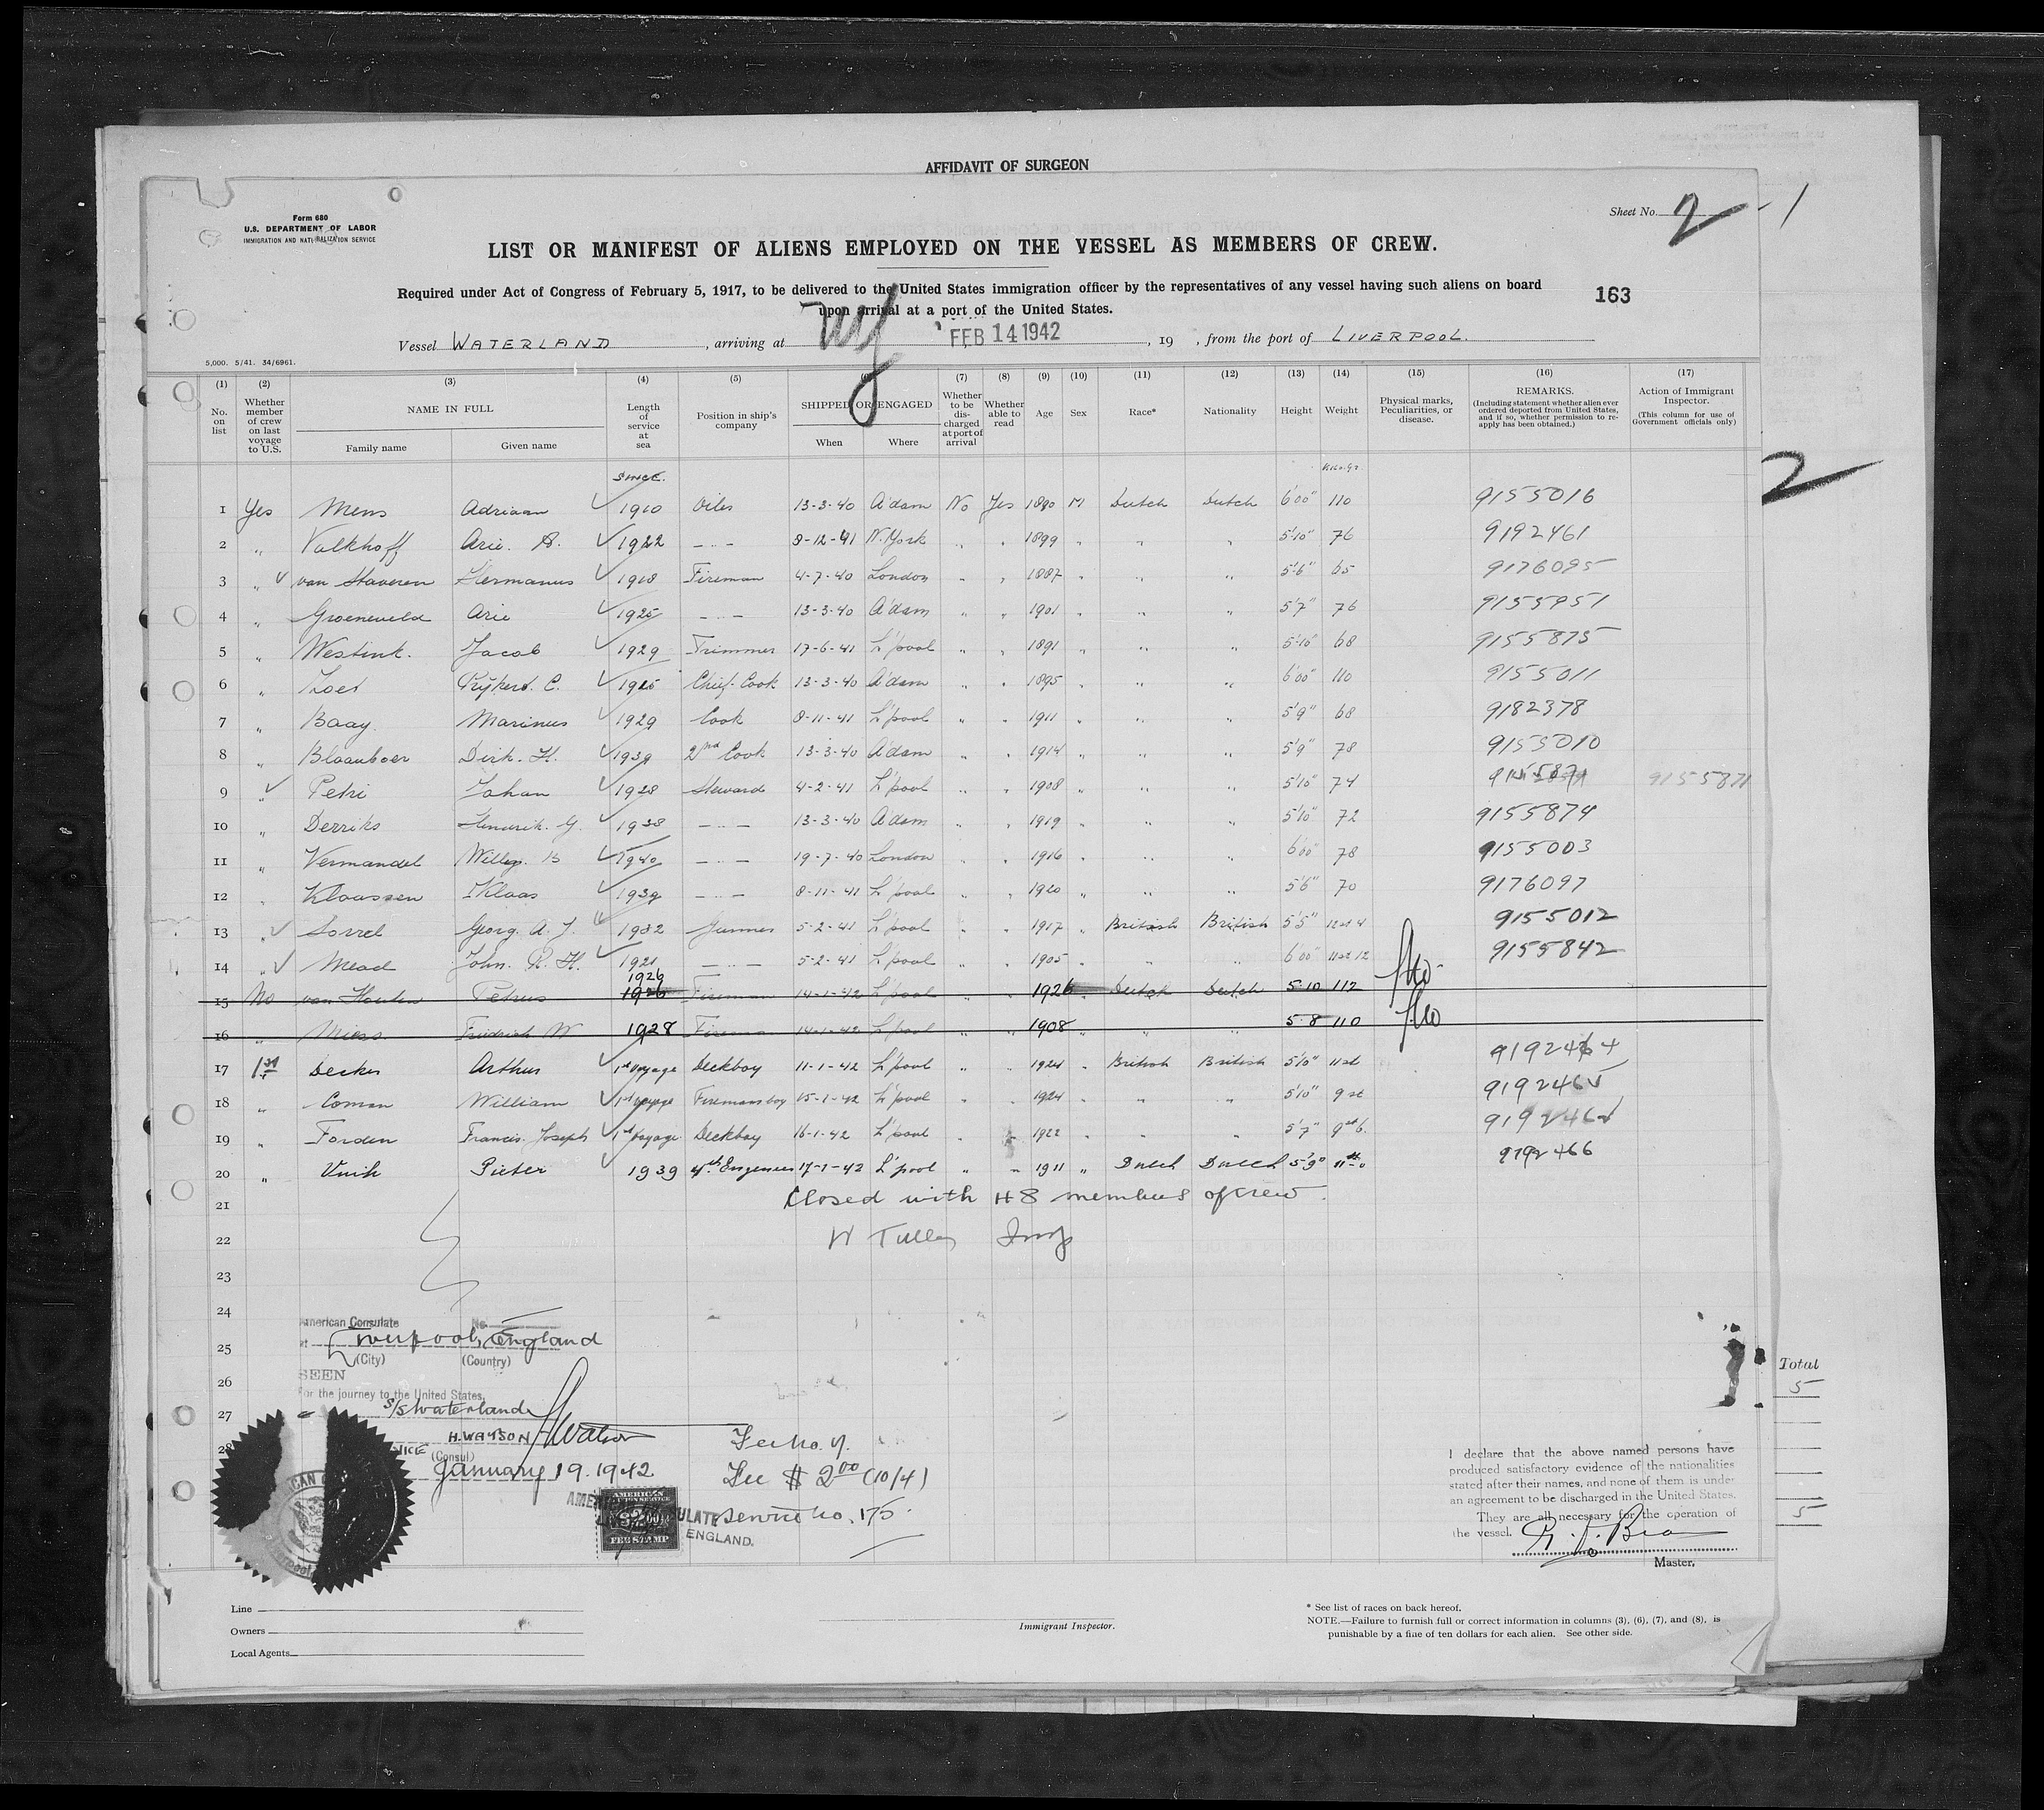 AFFIDAVIT OF SURGEON
Form 680
U.S. DEPARTMENT OF LABOR
IMMIGRATION AND NATURALIZATION SERVICE
Sheet No. 2 - 1
LIST OR MANIFEST OF ALIENS EMPLOYED ON THE VESSEL AS MEMBERS OF CREW.
Required under Act of Congress of February 5, 1917, to be delivered to the United States immigration officer by the representatives of any vessel having such aliens on board
upon arrival at a port of the United States.
163
Vessel WATERLAND, arriving at NY FEB 14 1942, 19 , from the port of LIVERPOOL.
5,000. 5/41. 34/6961.
(1) (2) (3) (4) (5) (6) (7) (8) (9) (10) (11) (12) (13) (14) (15) (16) (17)
No. on list
Whether member of crew on last voyage to U.S.
NAME IN FULL
Family name Given name
Length of service at sea
Position in ship's company
SHIPPED OR ENGAGED
When Where
Whether to be discharged at port of arrival
Whether able to read
Age Sex Race* Nationality Height Weight
Physical marks, Peculiarities, or disease.
REMARKS.
(Including statement whether alien ever ordered deported from United States, and if so, whether permission to reapply has been obtained.)
Action of Immigrant Inspector.
(This column for use of Government officials only)
SINCE.
2
1 Yes Mens Adriaan 1910 Oiler 13-3-40 A'dam No Yes 1890 M Dutch Dutch 6'00" 110 9155016
2 " Valkhoff Arie. A. 1922 - " - 8-12-41 N.York " " 1899 " " " 5'10" 76 9192461
3 " van Staveren Hermanus 1918 Fireman 4-7-40 London " " 1887 " " " 5'6" 65 9176095
4 " Groeneveld Arie 1925 - " - 13-3-40 A'dam " " 1901 " " " 5'7" 76 9155951
5 " Westink. Jacob 1929 Trimmer 17-6-41 L'pool " " 1891 " " " 5'10" 68 9155875
6 " Loet Rijkert. C. 1925 Chief. Cook 13-3-40 A'dam " " 1895 " " " 6'00" 110 9155011
7 " Baay Marinus 1929 Cook 8-11-41 L'pool " " 1911 " " " 5'9" 68 9182378
8 " Blaauboer Dirk. H. 1939 2nd Cook 13-3-40 A'dam " " 1914 " " " 5'9" 78 9155010
9 " Petri Johan 1928 Steward 4-2-41 L'pool " " 1908 " " " 5'10" 74 9155871 9155871
10 " Derriks Hendrik. G. 1938 - " - 13-3-40 A'dam " " 1919 " " " 5'10" 72 9155874
11 " Vermandel Willem. B 1940 - " - 19-7-40 London " " 1916 " " " 6'00" 78 9155003
12 " Klaassen Klaas 1939 - " - 8-11-41 L'pool " " 1920 " " " 5'6" 70 9176097
13 " Sorrel Georg. A. J. 1932 Gunner 5-2-41 L'pool " " 1917 " British British 5'5" 12st 4 9155012
14 " Mead John. R. H. 1921 - " - 5-2-41 L'pool " " 1905 " " " 6'00" 11st 12 9155842
1926
15 No van Houten Petrus 1926 Fireman 14-1-42 L'pool " " 1926 " Dutch Dutch 5-10 112
16 " Miess Friedrich W 1928 Fireman 14-1-42 L'pool " " 1908 " " " 5-8 110
17 1st Decker Arthur 1st Voyage Deckboy 11-1-42 L'pool " " 1924 " British British 5'10" 11st 9192464
18 " Coman William 1st Voyage Firemansboy 15-1-42 L'pool " " 1924 " " " 5'10" 9 st 9192465
19 " Forden Francis. Joseph 1st Voyage Deckboy 16-1-42 L'pool " " 1922 " " " 5'7" 9st 6.
20 " Vuik Pieter 1939 4th Engineer 17-1-42 L'pool " " 1911 " Dutch Dutch 5'9" 11st 0 9192466
21 Closed with 48 members of crew.
22 W Tulley
23
24
25
26
27
28
American Consulate No.
at Liverpool, England
(City) (Country)
SEEN
For the journey to the United States,
S/S Waterland
H. WATSON HWatson
VICE (Consul)
January 19. 1942
Fee No. 7.
Fee $ 2.00 (10/4)
Service No. 175.
AMERICAN CONSULATE
ENGLAND.
AMERICAN
FEE STAMP
Total
5
5
I declare that the above named persons have
produced satisfactory evidence of the nationalities
stated after their names, and none of them is under
an agreement to be discharged in the United States.
They are all necessary for the operation of
the vessel.
Master.
Line
Owners
Local Agents
Immigrant Inspector.
* See list of races on back hereof.
NOTE.—Failure to furnish full or correct information in columns (3), (6), (7), and (8), is
punishable by a fine of ten dollars for each alien. See other side.